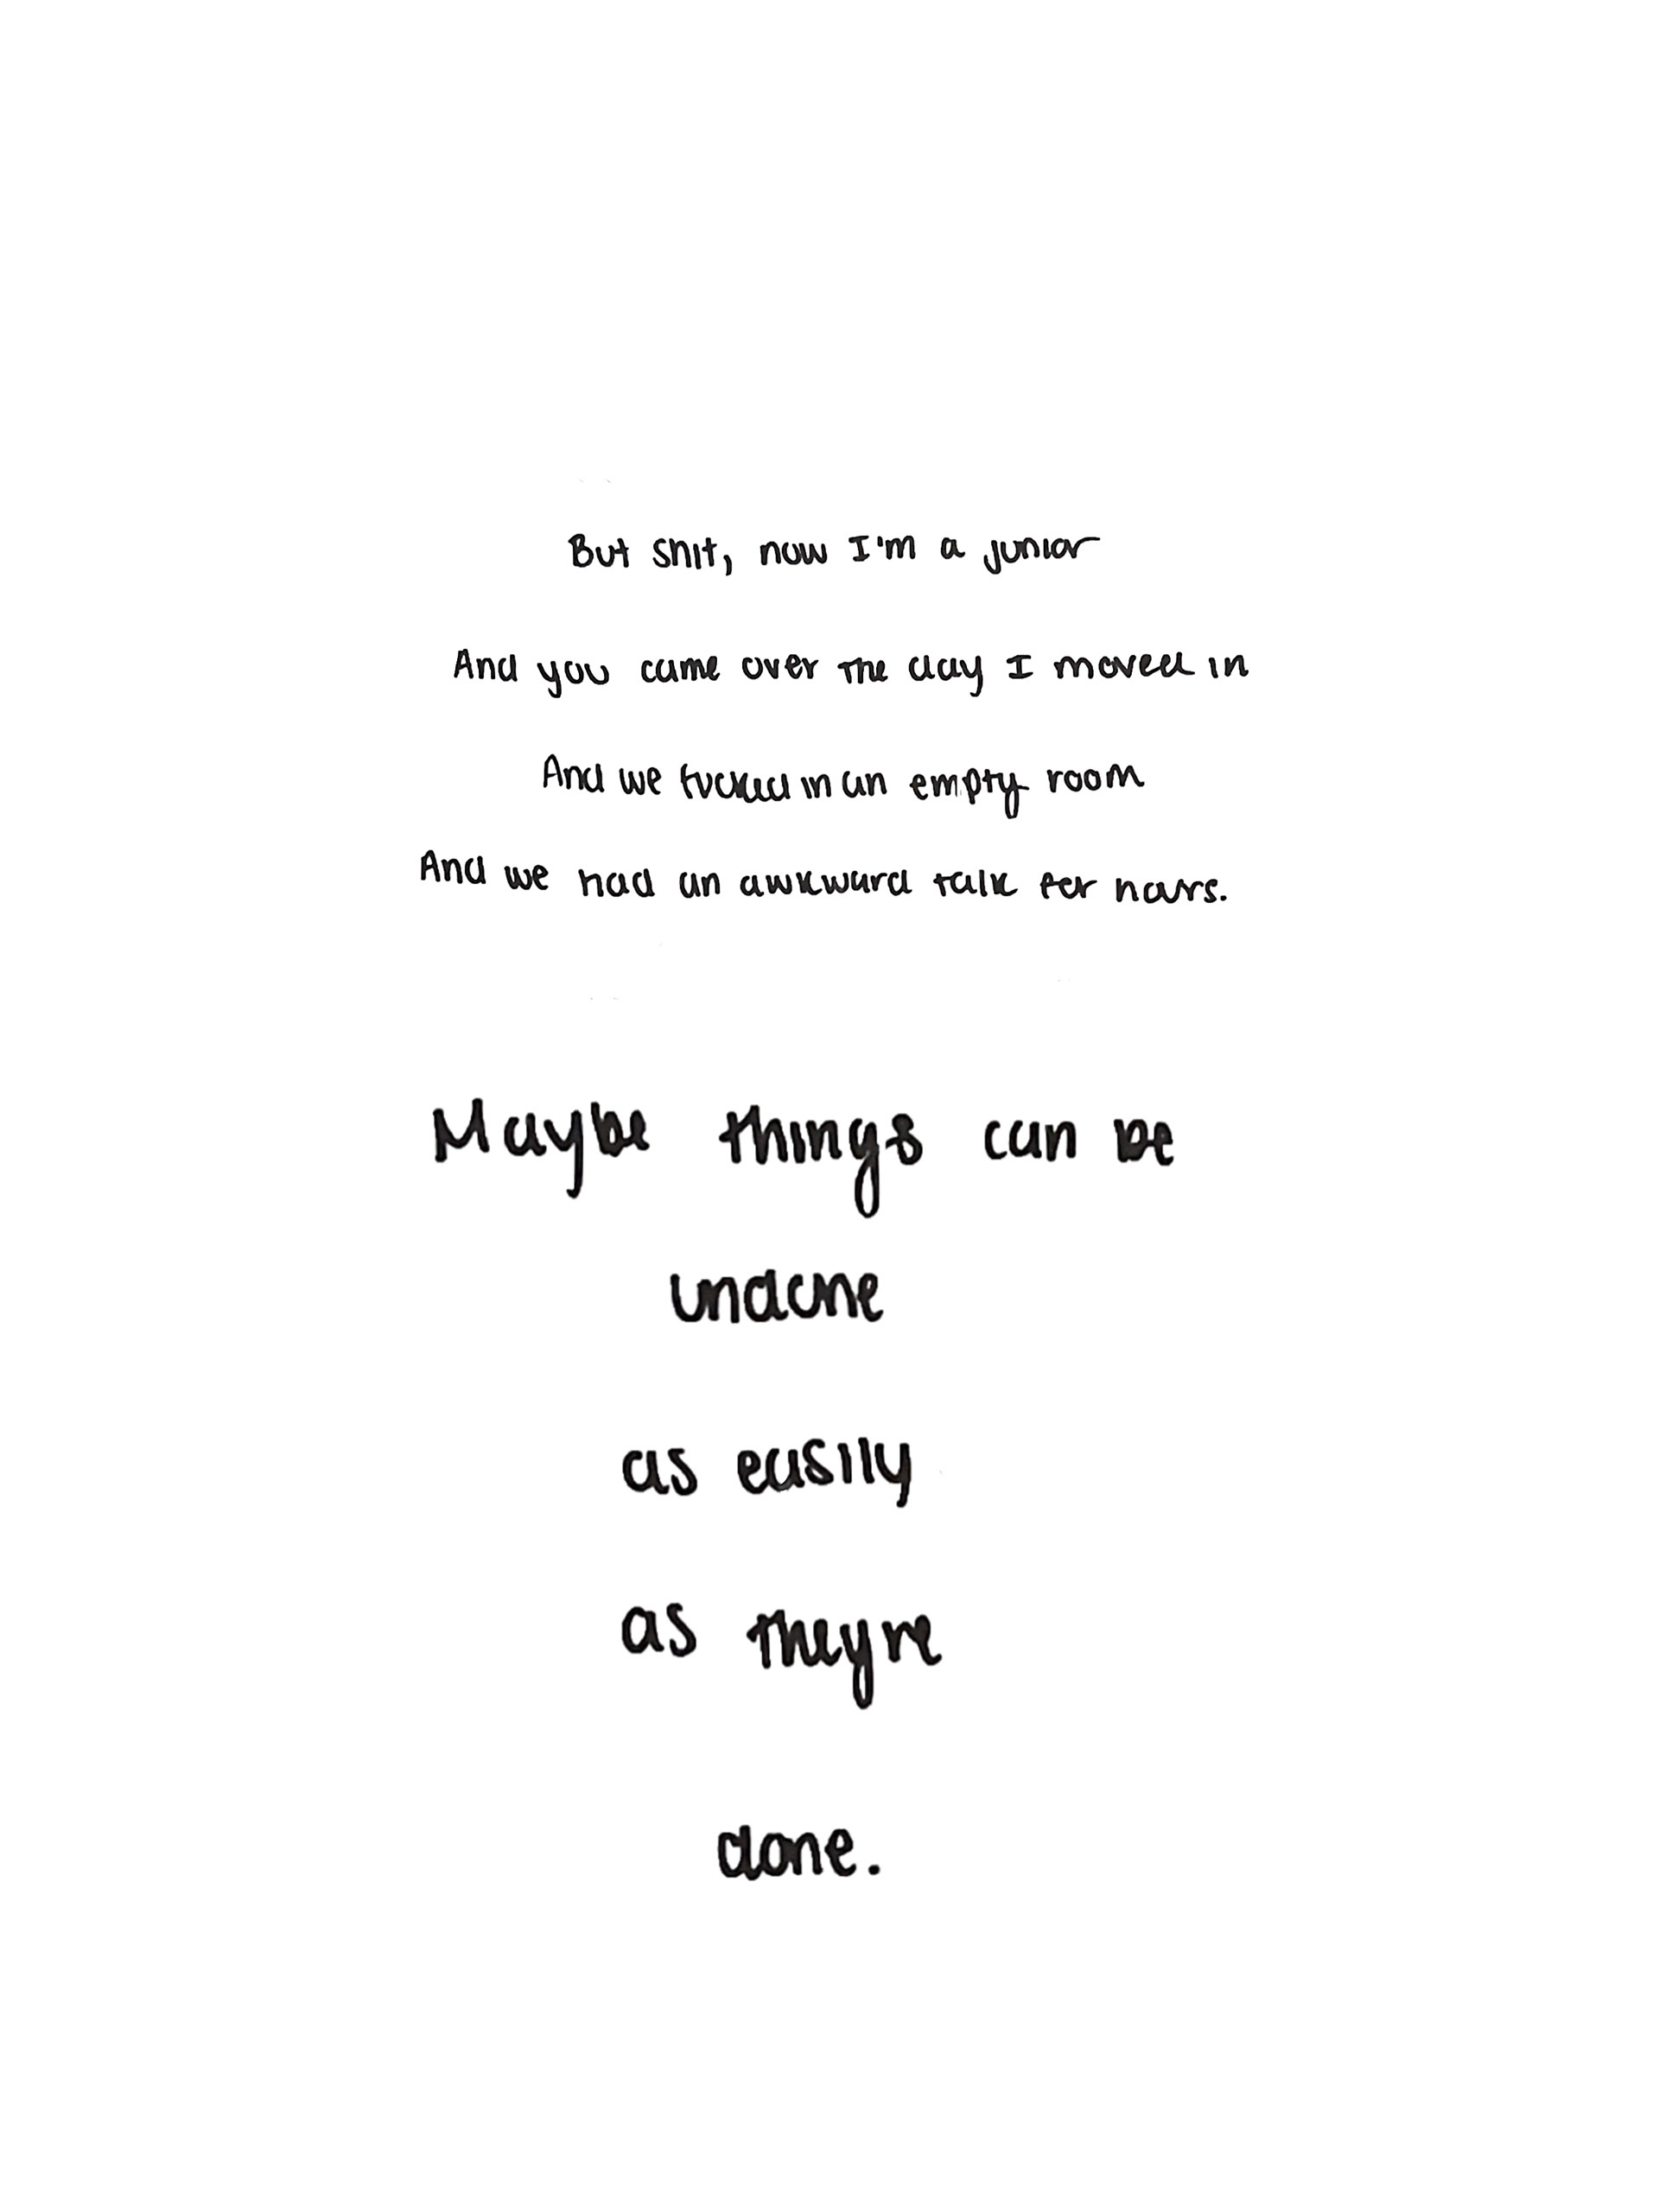 But shit, now I'm a junior
And you came over the day I moved in
And we fucked in an empty room
And we had an awkward talk for hours.
Maybe things can be
undone
as easily
as theyre
done.